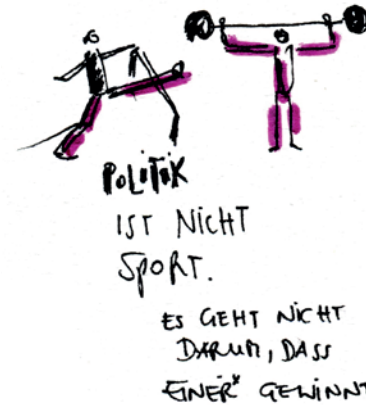 POLITIK
IST NICHT
SPORT.
ES GEHT NICHT
DARUM, DASS
EINER* GEWINNT